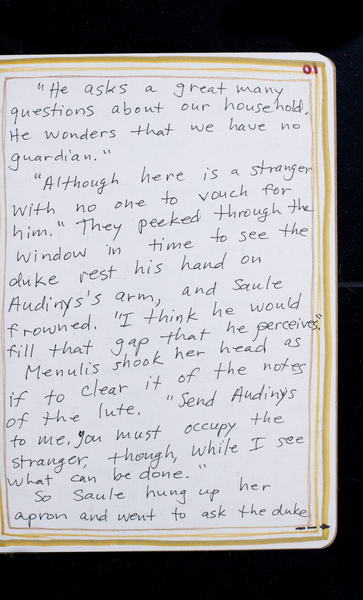 01
"He asks a great many
questions about our household.
He wonders that we have no
guardian."
"Although here is a stranger
with no one to vouch for
him." They peeked through the
window in time to see the
duke rest his hand on
Audinys's arm, and Saule
frowned. "I think he would
fill that gap that he perceives."
Menulis shook her head as
if to clear it of the notes
of the lute. "Send Audinys
to me. You must occupy the
stranger, though, while I see
what can be done."
So Saule hung up her
apron and went to ask the duke